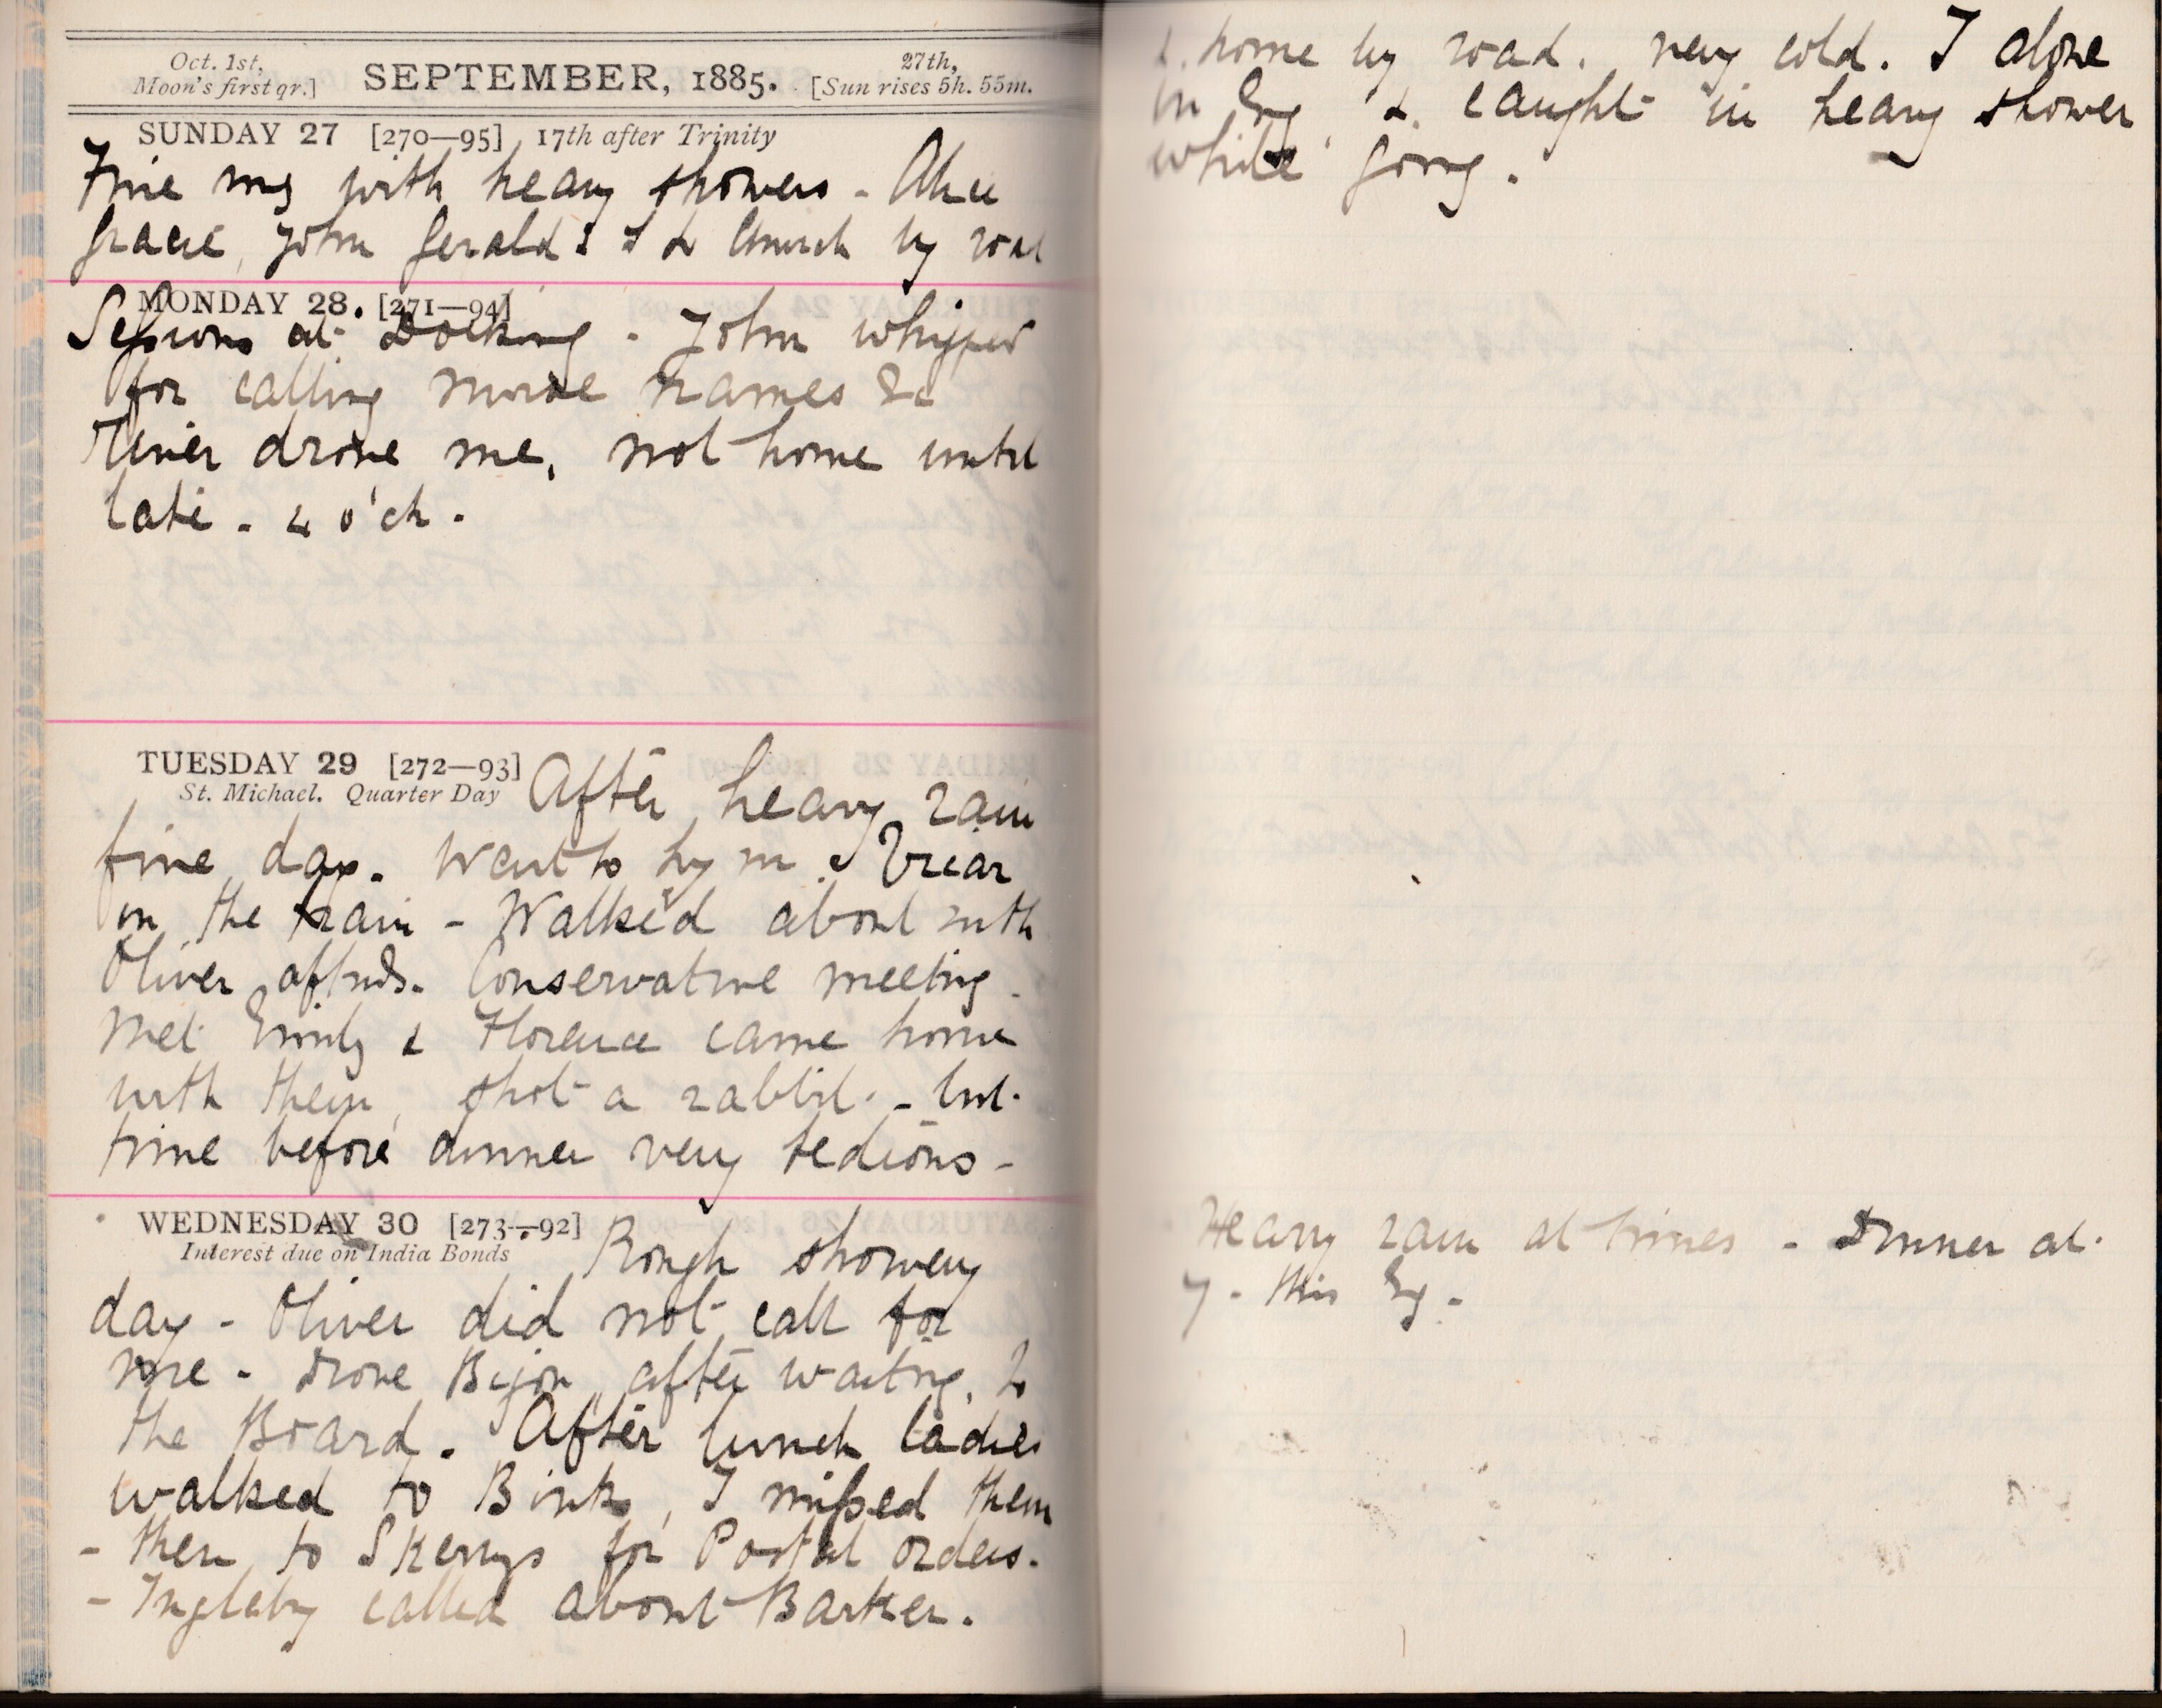 Oct. 1st,
Moon's first qr.]
SEPTEMBER, 1885.
27th,
[Sun rises 5h. 55m.
SUNDAY 27 [270—95] 17th after Trinity
Fine mg with heavy showers - Alice
Gracie, John Gerald & I to Church by road
& home by road. very cold. I alone
in Evg & caught in heavy shower
while going.
MONDAY 28. [271—94]
Sessions at Docking - John whipped
for calling nurse names &c
Oliver drove me, not home until
late - 4 o'ck.
TUESDAY 29 [272—93]
St. Michael. Quarter Day
After heavy rain
fine day. Went to Lynn. Briar
in the train - Walked about with
Oliver. Conservative meeting.
Met Emily & Florence came home
with them, shot a rabbit. - but
time before dinner very tedious -
WEDNESDAY 30 [273—92]
Interest due on India Bonds
Rough showery
day - Oliver did not call for
me - drove Bijou, after waiting, to
the Board. After lunch ladies
walked to Birks, I missed them
- then to Skerrys for Postal orders.
- Ingleby called about Barker.
Heavy rain at times - Dinner at
7 - this Evg -